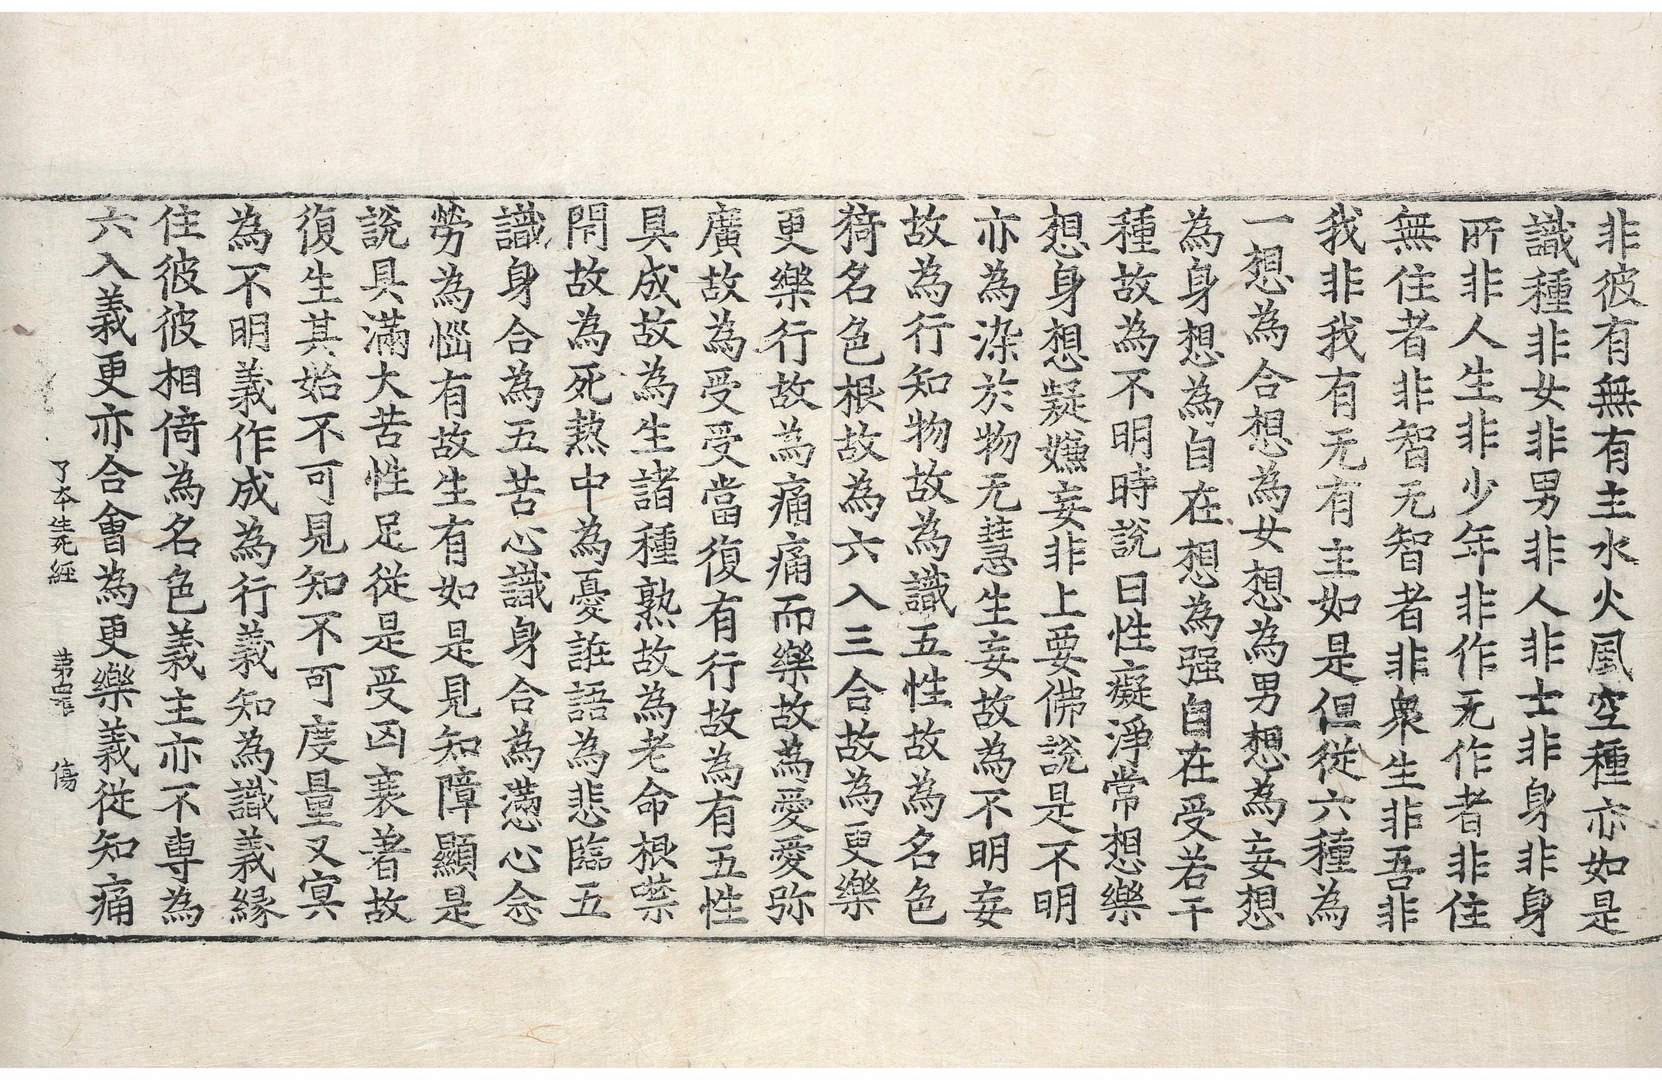 非彼有無有主水火風空種亦如是
識種非女非男非人非士非身非身
所非人生非少年非作无作者非住
無住者非智无智者非衆生非吾非
我非我有无有主如是但從六種為
一想為合想為女想為男想為妄想
為身想為自在想為强自在受若干
種故為不明時說曰性癡淨常想樂
想身想疑嫌妄非上要佛說是不明
亦為染於物无慧生妄故為不明妄
故為行知物故為識五性故為名色
猗名色根故為六入三合故為更樂
更樂行故為痛痛而樂故為愛愛弥
廣故為受受當復有行故為有五性
具成故為生諸種熟故為老命根噤
閇故為死熱中為憂誰語為悲臨五
識身合為五苦心識身合為懣心念
勞為惱有故生有如是見知障顯是
說具滿大苦性足從是受凶衰著故
復生其始不可見知不可度量又冥
為不明義作成為行義知為識義緣
住彼彼相倚為名色義主亦不専為
六入義更亦合會為更樂義從知痛
了本生死經 第四張 傷